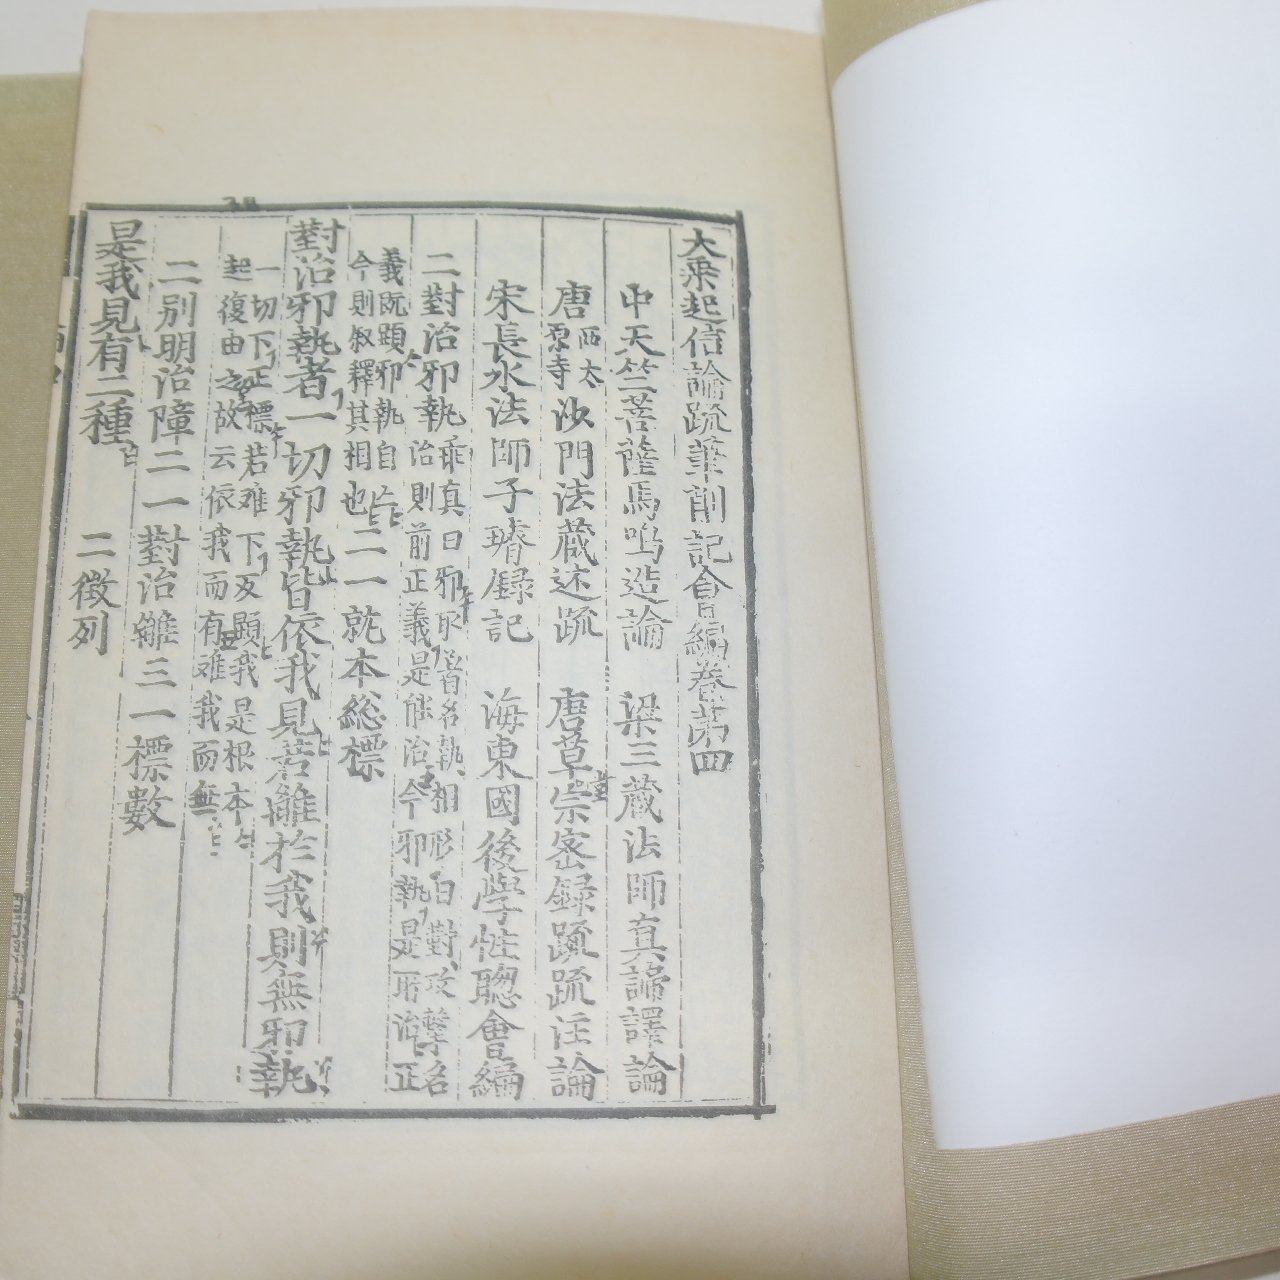 大乘起信論疏筆削記會編卷第四
中天竺菩薩馬鳴造論 梁三藏法師真諦譯論
唐西太原寺沙門法藏述疏 唐草堂宗密録疏疏注論
宋長水法師子璿録記 海東國後學性聰會編
二對治邪執乖真曰邪取皆名執相形曰對攻擊名
治則前正義是能治今邪執是所治正
義既顯邪執自亡
今則叙釋其相也二一就本総標
對治邪執者一切邪執皆依我見若離於我則無邪執
一切下正標若难下反顯我是根本
起復由之故云依我而有难我而無
二別明治障二一對治離三一標數
是我見有二種 二徵列